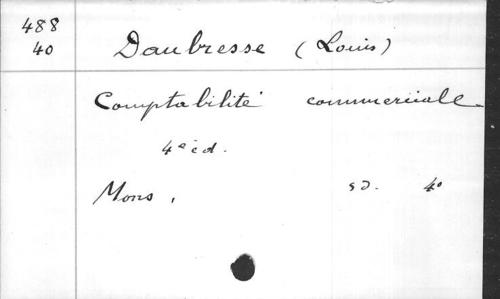 488
40
Daubresse (Louis)
Comptabilité commerciale
4e éd.
Mons, sd. 4o